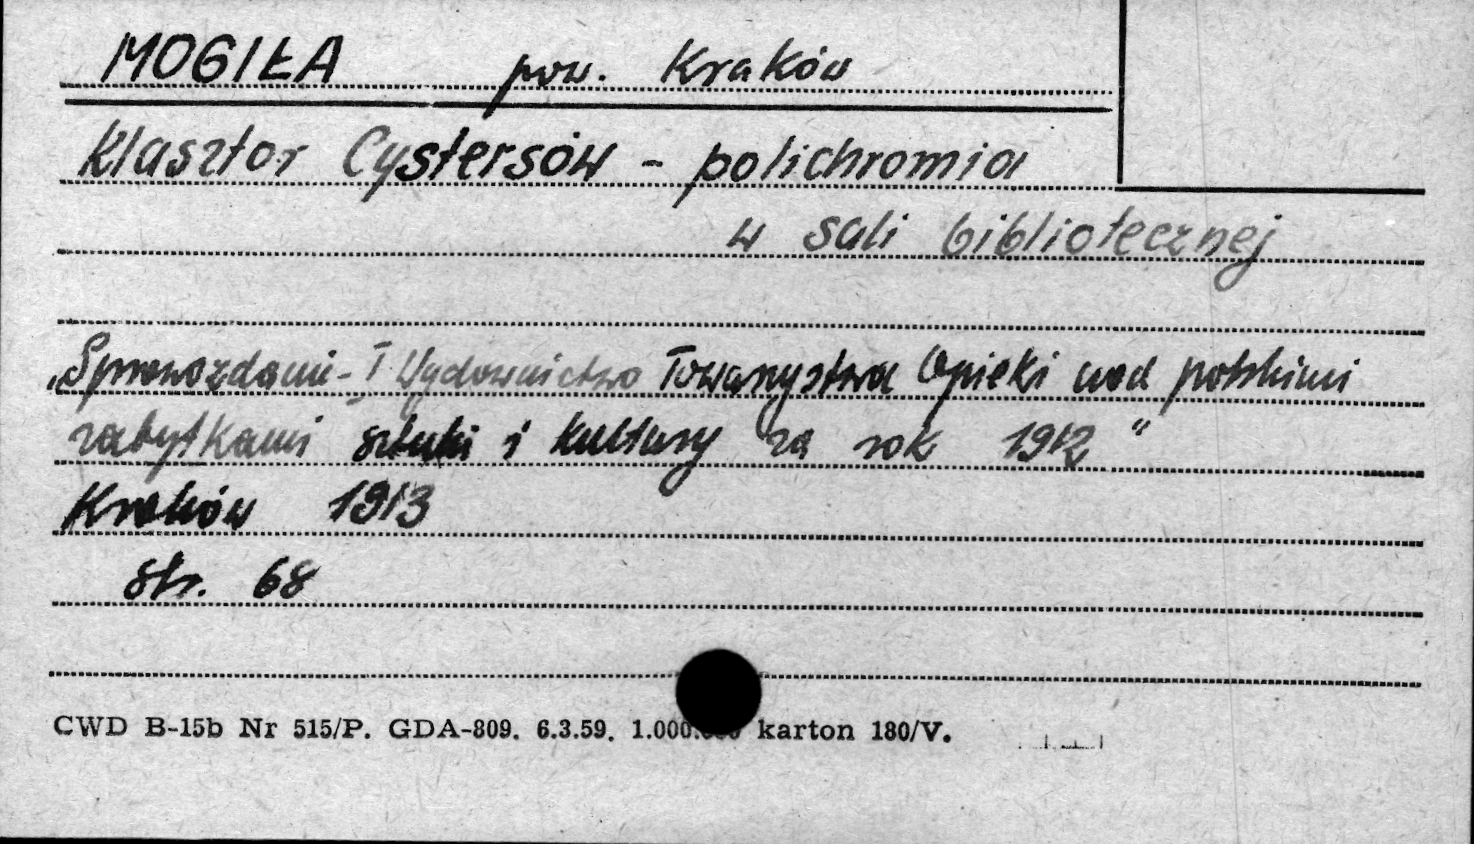 MOGIŁA pow. Kraków
Klasztor Cystersów - polichromia
w sali bibliotecznej
„Sprawozdanie - I Wydawnictwo Towarzystwa Opieki nad polskimi
zabytkami sztuki i kultury za rok 1912“
Kraków 1913
str. 68
CWD B-15b Nr 515/P. GDA-809. 6.3.59. 1.000.000 karton 180/V.